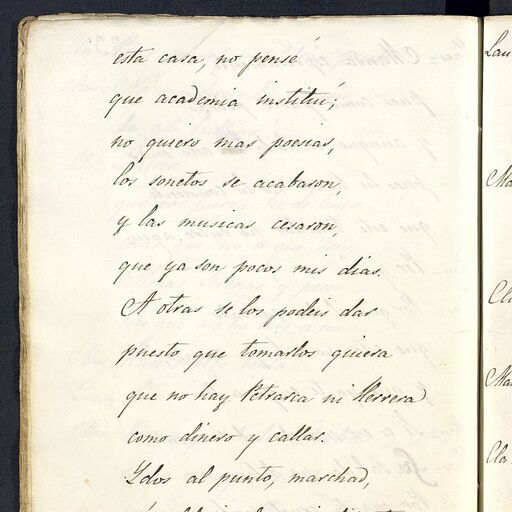 esta casa, no pensé
que academia instituí;
no quiero mas poesias,
los sonetos se acabaron,
y las musicas cesaron,
que ya son pocos mis dias.
A otras se los podeis dar
puesto que tomarlos quiera
que no hay Petrarca ni Herrera
como dinero y callar.
Ydos al punto, marchad,
Lau
Ma
Cla